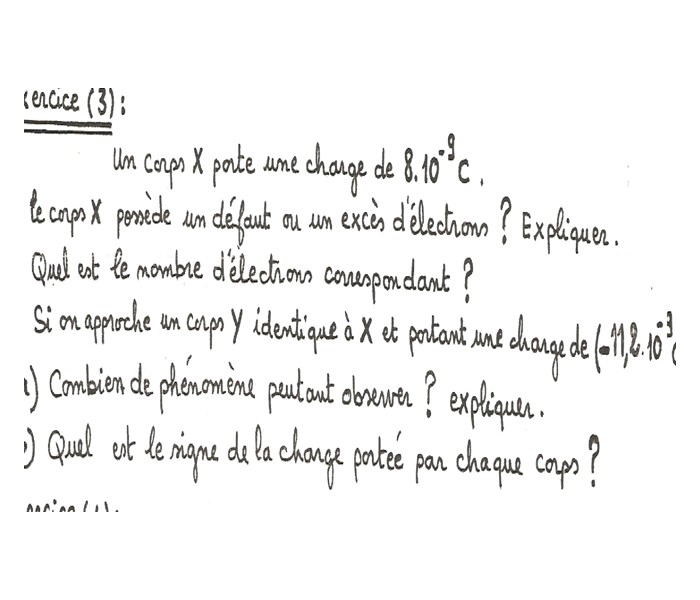 xercice (3):
Un corps X porte une charge de 8.10⁻⁹C.
le corps X possède un défaut ou un excès d'électrons ? Expliquer.
Quel est le nombre d'électrons correspondant ?
Si on approche un corps Y identique à X et portant une charge de (-11,2.10⁻⁹C
) Combien de phénomène peutant observer ? expliquer.
) Quel est le signe de la charge portée par chaque corps ?